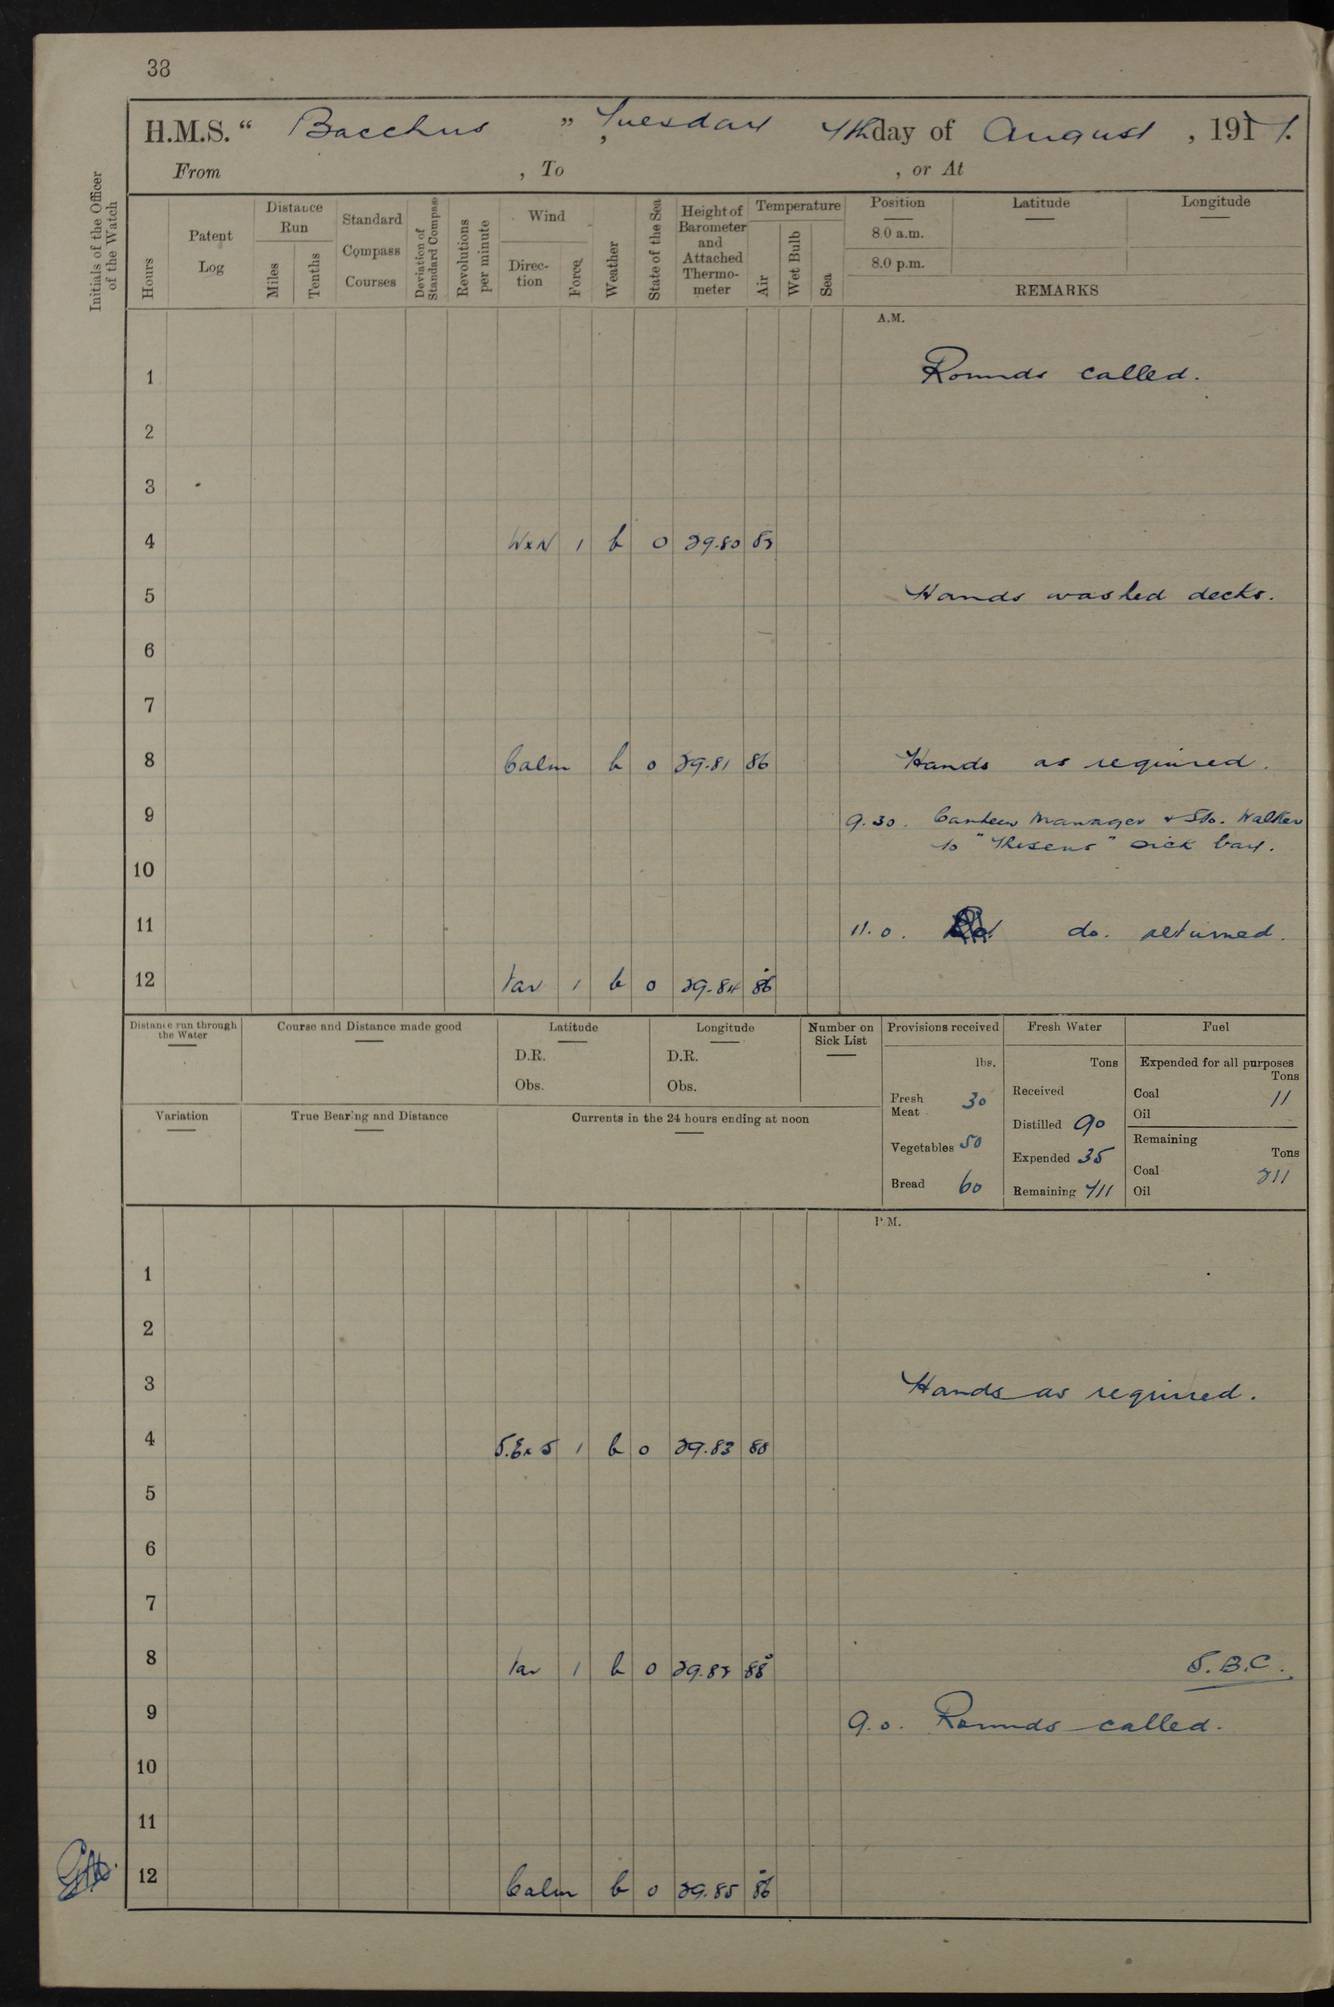 38
H.M.S. “ Bacchus ” , Tuesday 7th day of August , 1917.
From , To , or At
Initials of the Officer of the Watch
Hours
Patent Log
Distance Run
Miles
Tenths
Standard Compass Courses
Deviation of Standard Compass
Revolutions per minute
Wind
Direction
Force
Weather
State of the Sea
Height of Barometer and Attached Thermometer
Temperature
Air
Wet Bulb
Sea
Position Latitude Longitude
8.0 a.m.
8.0 p.m.
REMARKS
A.M.
1 Rounds called.
2
3
4 WxN 1 b 0 29.80
5 Hands washed decks.
6
7
8 Calm b 0 29.81 86 Hands as required.
9 9.30. Canteen Manager & Sto. Walker
to "Theseus" sick bay.
10
11 11.0. do. returned.
12 Var 1 b 0 29.84 86
Distance run through the Water
Course and Distance made good
Latitude
D.R.
Obs.
Longitude
D.R.
Obs.
Number on Sick List
Variation
True Bearing and Distance
Currents in the 24 hours ending at noon
Provisions received
lbs.
Fresh Meat 30
Vegetables 50
Bread 60
Fresh Water
Tons
Received
Distilled 90
Expended 35
Remaining 711
Fuel
Expended for all purposes
Tons
Coal 11
Oil
Remaining
Tons
Coal 211
Oil
P.M.
1
2
3 Hands as required.
4 S.ExS 1 b 0 29.83 88
5
6
7
8 Var 1 b 0 88 S.B.C.
9 9.0. Rounds called.
10
11
12 Calm b 0 29.85 86